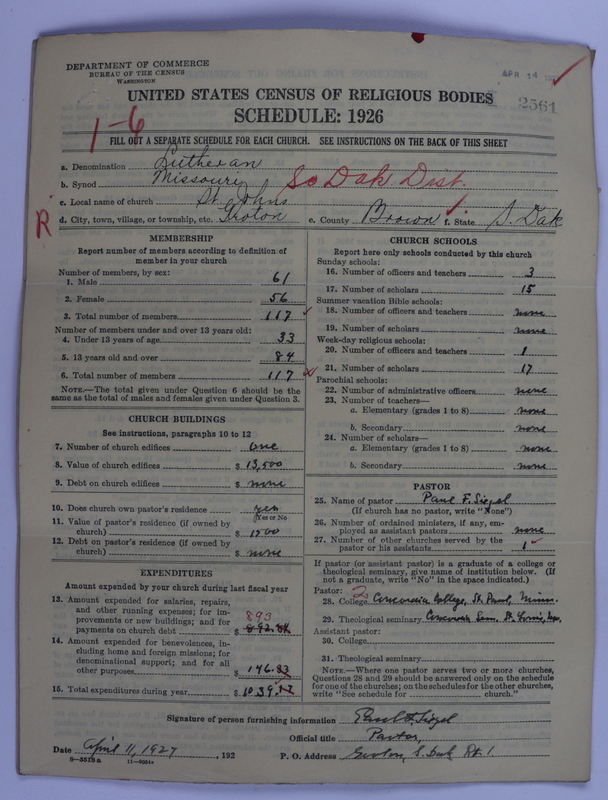 DEPARTMENT OF COMMERCE
BUREAU OF THE CENSUS
WASHINGTON
APR 14
2561
UNITED STATES CENSUS OF RELIGIOUS BODIES
SCHEDULE: 1926
1-6
FILL OUT A SEPARATE SCHEDULE FOR EACH CHURCH. SEE INSTRUCTIONS ON THE BACK OF THIS SHEET
a. Denomination Lutheran
b. Synod Missouri So Dak Dist.
c. Local name of church St. Johns
R
d. City, town, village, or township, etc. Groton e. County Brown f. State S. Dak
MEMBERSHIP
Report number of members according to definition of
member in your church
Number of members, by sex:
1. Male 61
2. Female 56
3. Total number of members 117
Number of members under and over 13 years old:
4. Under 13 years of age 33
5. 13 years old and over 84
6. Total number of members 117
NOTE.—The total given under Question 6 should be the
same as the total of males and females given under Question 3.
CHURCH BUILDINGS
See instructions, paragraphs 10 to 12
7. Number of church edifices one
8. Value of church edifices $ 13,500
9. Debt on church edifices $ none
10. Does church own pastor's residence yes
(Yes or No)
11. Value of pastor's residence (if owned by
church) $ 1500
12. Debt on pastor's residence (if owned by
church) $ none
EXPENDITURES
Amount expended by your church during last fiscal year
13. Amount expended for salaries, repairs,
and other running expenses; for im-
provements or new buildings; and for
payments on church debt $ 893
14. Amount expended for benevolences, in-
cluding home and foreign missions; for
denominational support; and for all
other purposes $ 146.83
15. Total expenditures during year $ 1039
CHURCH SCHOOLS
Report here only schools conducted by this church
Sunday schools:
16. Number of officers and teachers 3
17. Number of scholars 15
Summer vacation Bible schools:
18. Number of officers and teachers none
19. Number of scholars none
Week-day religious schools:
20. Number of officers and teachers 1
21. Number of scholars 17
Parochial schools:
22. Number of administrative officers none
23. Number of teachers—
a. Elementary (grades 1 to 8) none
b. Secondary none
24. Number of scholars—
a. Elementary (grades 1 to 8) none
b. Secondary none
PASTOR
25. Name of pastor Paul F. Siegel
(If church has no pastor, write "None")
26. Number of ordained ministers, if any, em-
ployed as assistant pastors none
27. Number of other churches served by the
pastor or his assistants 1
If pastor (or assistant pastor) is a graduate of a college or
theological seminary, give name of institution below. (If
not a graduate, write "No" in the space indicated.)
Pastor: 2
28. College Concordia College, St. Paul, Minn.
29. Theological seminary Concordia Sem. St. Louis, Mo.
Assistant pastor:
30. College
31. Theological seminary
NOTE.—Where one pastor serves two or more churches,
Questions 28 and 29 should be answered only on the schedule
for one of the churches; on the schedules for the other churches,
write "See schedule for church."
Signature of person furnishing information Paul F. Siegel
Official title Pastor,
Date April 11, 1927, 192 P. O. Address Groton, S. Dak. Rt. 1.
8-5518a 11-9004a